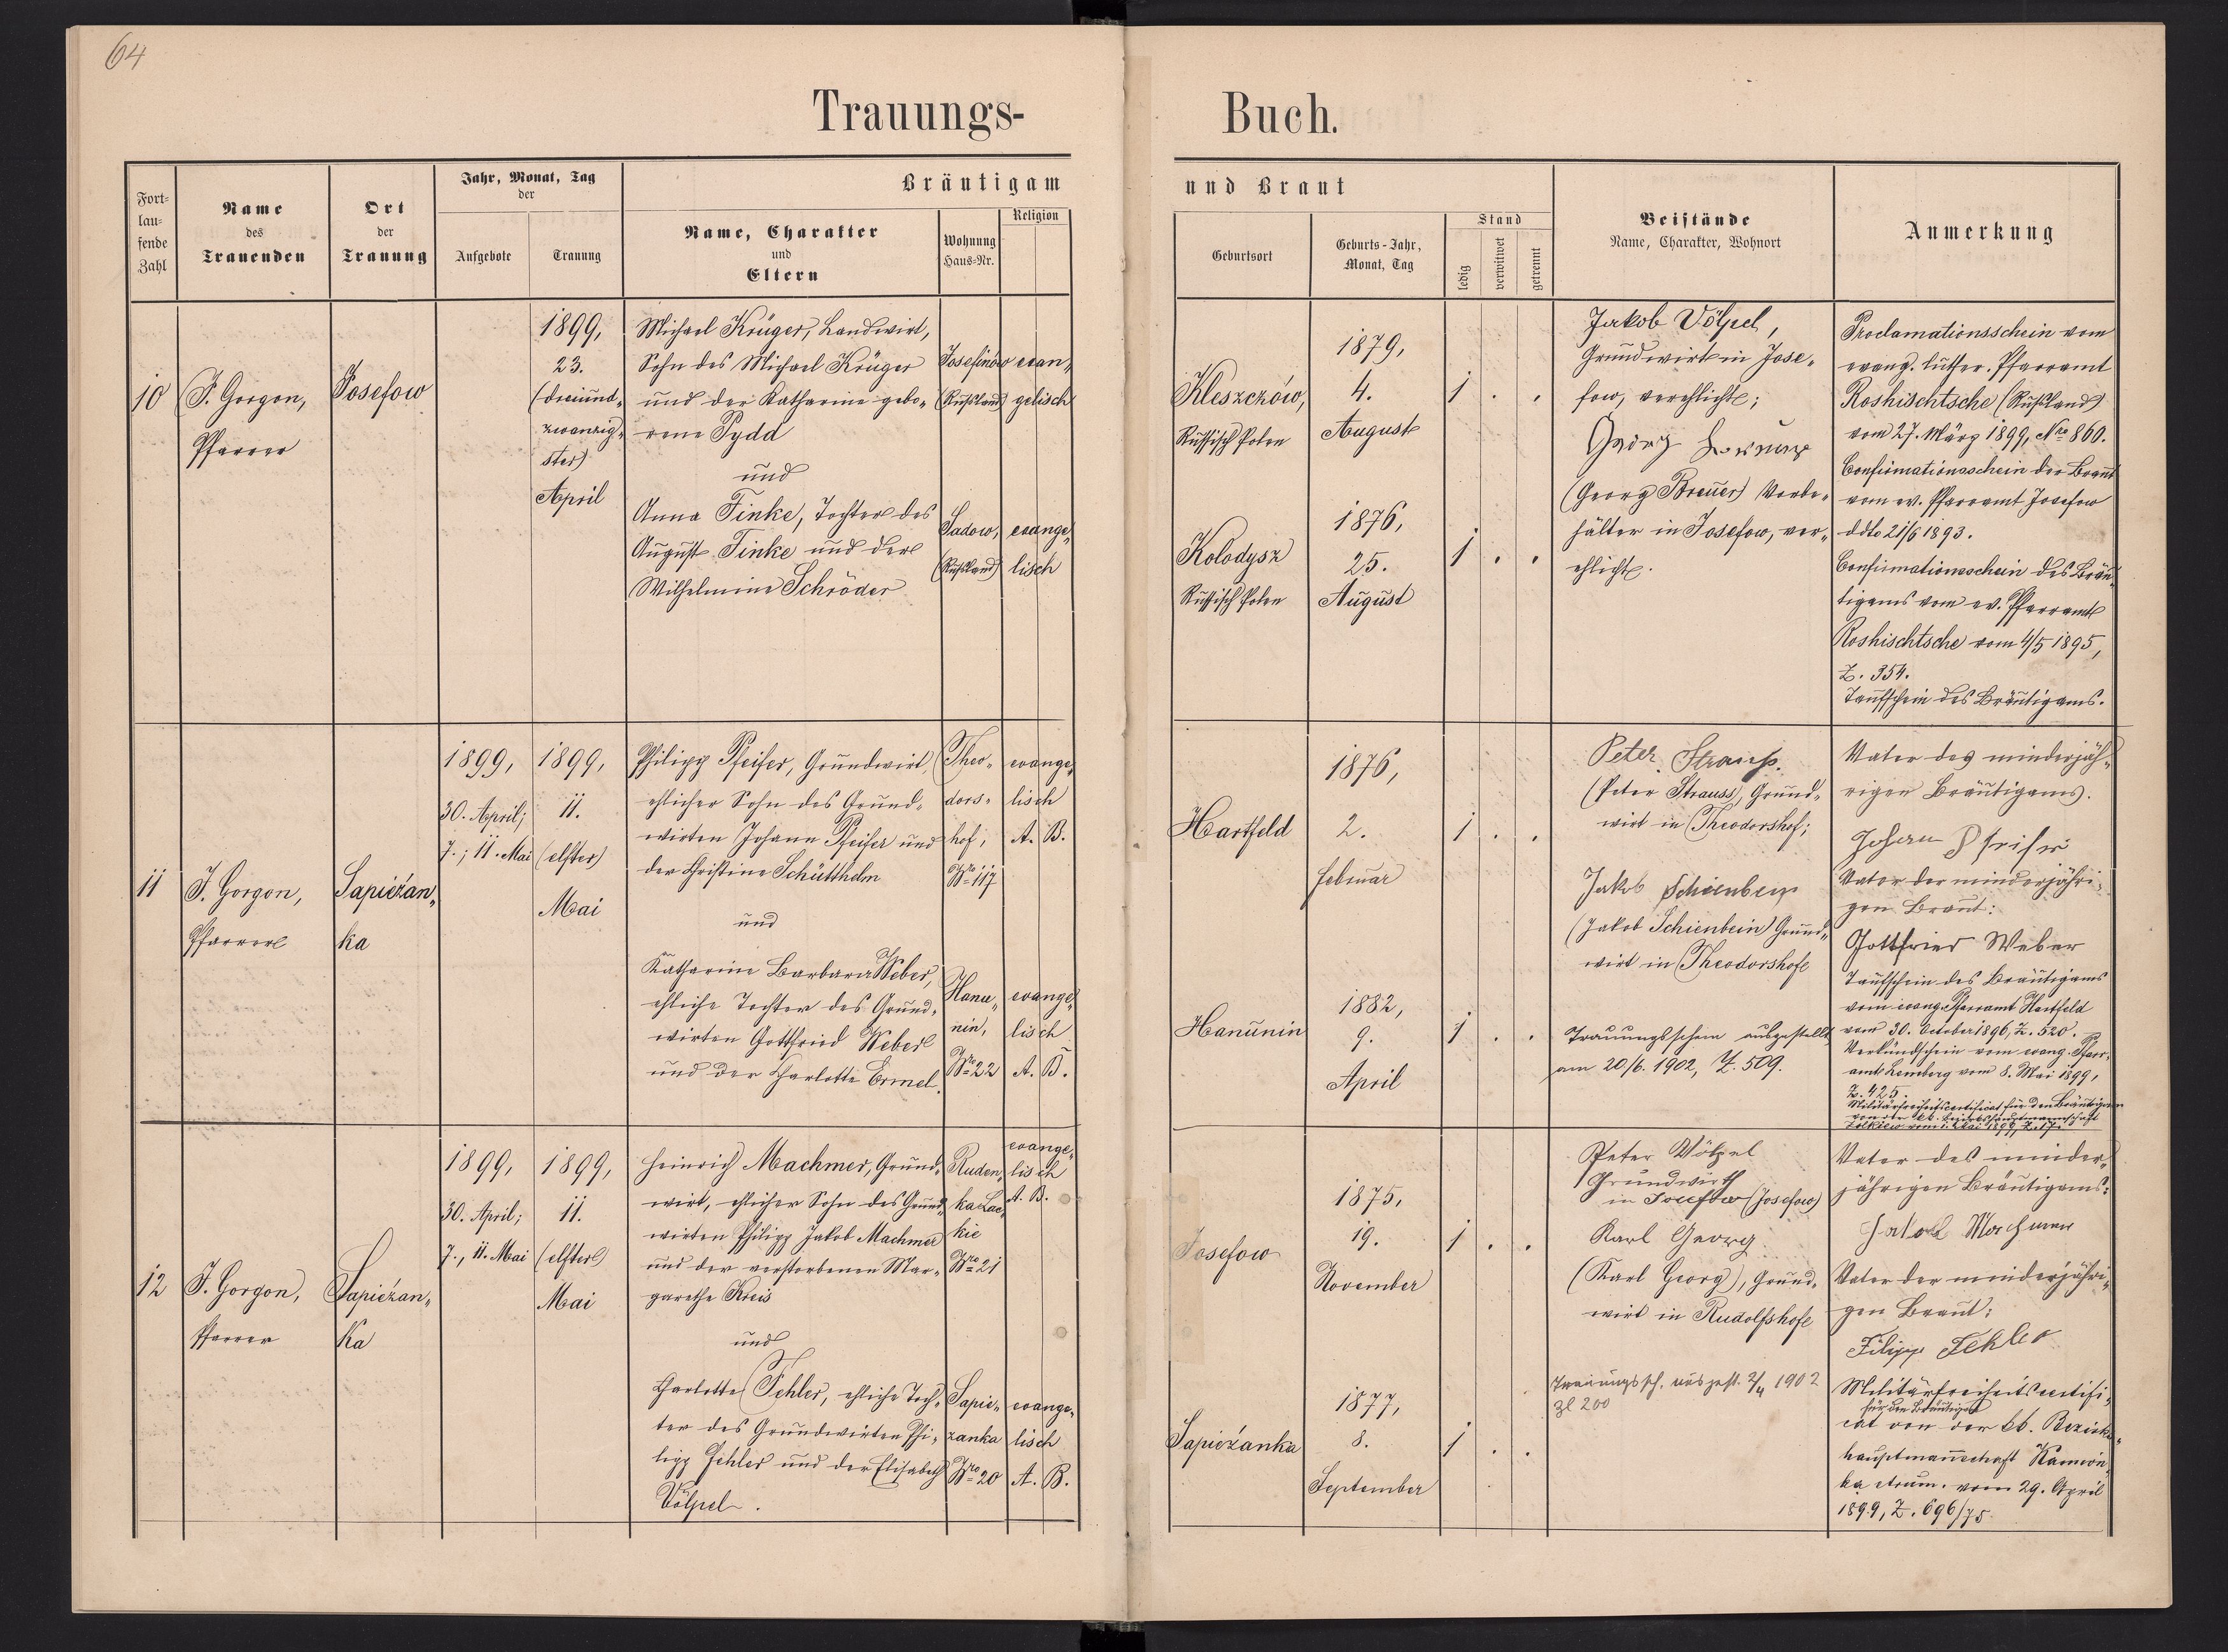 64
Trauungs-
Buch.
Fort-
lau-
fende
Zahl
Name
des
Trauenden
Ort
der
Trauung
Jahr, Monat, Tag
der
Aufgebote
Trauung
Bräutigam
Name, Charakter
und
Eltern
Wohnung
Haus-Nr.
Religion
und Braut
Geburtsort
Geburts-Jahr,
Monat, Tag
Stand
ledig
verwitwet
getrennt
Beistände
Name, Charakter, Wohnort
Anmerkung
10
J. Gorgon,
Pfarrer
Josefow
1899,
23.
(dreiund-
zwanzig-
ster)
April
Michael Krüger, Landwirt,
Sohn des Michael Krüger
und der Katharine gebo-
rene Pydd
und
Anna Finke, Tochter des
August Finke und der
Wilhelmine Schröder
Josefinow
(Rußland)
evan-
gelisch
Sadow,
(Rußland)
evange-
lisch
Kleszczów,
Russisch Polen
1879,
4.
August
1 . .
Kolodysz
Russisch Polen
1876,
25.
August
1 . .
Jakob Völpel,
Grundwirt in Jose-
fow, verehlicht;
Georg
(Georg Breuer) Vorbe-
hälter in Josefow, ver-
ehlicht.
Proclamationsschein vom
evang. luther. Pfarramt
Roshischtsche (Rußland)
vom 27. März 1899, Nro 860.
Confirmationsschein der Braut
vom ev. Pfarramt Josefow
ddto 21/6 1893.
Confirmationsschein des Bräu-
tigams vom ev. Pfarramt
Roshischtsche vom 4/5 1895,
Z. 354.
Taufschein des Bräutigams.
11
J. Gorgon,
Pfarrer
Sapieżan-
ka
1899,
30. April;
7.; 11. Mai
1899,
11.
(elfter)
Mai
Philipp Pfeifer, Grundwirt,
ehlicher Sohn des Grund-
wirten Johann Pfeifer und
der Christine Schütthelm
und
Katharine Barbara Weber,
ehliche Tochter des Grund-
wirten Gottfried Weber
und der Charlotte Ermel.
Theo-
dors-
hof,
Nro 117
evange-
lisch
A. B.
Hanu-
nin,
Nro 22
evange-
lisch
A. B.
Hartfeld
1876,
2.
Februar
1 . .
Hanunin
1882,
9.
April
1 . .
Peter Strauss.
(Peter Strauss), Grund-
wirt in Theodorshof;
Jakob Schienbein
(Jakob Schienbein) Grund-
wirt in Theodorshofe
Trauungsschein ausgestellt
am 20/6. 1902, Z. 509.
Vater des minderjäh-
rigen Bräutigams.
Johann Pfeifer
Vater der minderjähri-
gen Braut:
Gottfried Weber
Taufschein des Bräutigams
vom evang. Pfarramt Hartfeld
vom 30. October 1896, Z. 520.
Verkündschein vom evang. Pfarr-
amt Lemberg vom 8. Mai 1899,
Z. 425.
Militärfreiheitscertificat für den Bräutigam
von der kk. Bezirkshauptmannschaft
12
J. Gorgon,
Pfarrer
Sapieżan-
ka
1899,
30. April;
7., 11. Mai
1899,
11.
(elfter)
Mai
Heinrich Machmer, Grund-
wirt, ehlicher Sohn des Grund-
wirten Philipp Jakob Machmer
und der verstorbenen Mar-
garethe Kreis
und
Charlotte Fehler, ehliche Toch-
ter des Grundwirten Phi-
lipp Fehler und der Elisabeth
Völpel.
Ruden-
ka Lac-
kie
Nro 21
evange-
lisch
A. B.
Sapie-
żanka
Nro 20
evange-
lisch
A. B.
Josefow
1875,
19.
November
1 . .
Sapieżanka
1877,
8.
September
1 . .
Peter Völpel
Grundwirth
in Josefow (Josefow)
Karl Georg
(Karl Georg), Grund-
wirt in Rudolfshofe
Trauungssch. ausgest. 2/4 1902
Zl 200
Vater des minder-
jährigen Bräutigams:
Jakob Machmer
Vater der minderjähri-
gen Braut:
Filipp Fehler
Militärfreiheitscertifi-
für den Bräutigam
cat von der kk. Bezirks-
hauptmannschaft Kamion-
ka strum. vom 29. April
1899, Z. 696/75